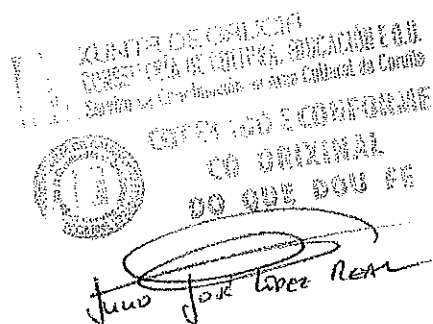 XUNTA DE GALICIA
CONSELLERÍA DE CULTURA, EDUCACIÓN E O.U.
Servizo de Coordinación da Área Cultural da Coruña
COTEXADO E CONFORME
CO ORIXINAL
DO QUE DOU FE
JULIO JOSÉ LÓPEZ REAL